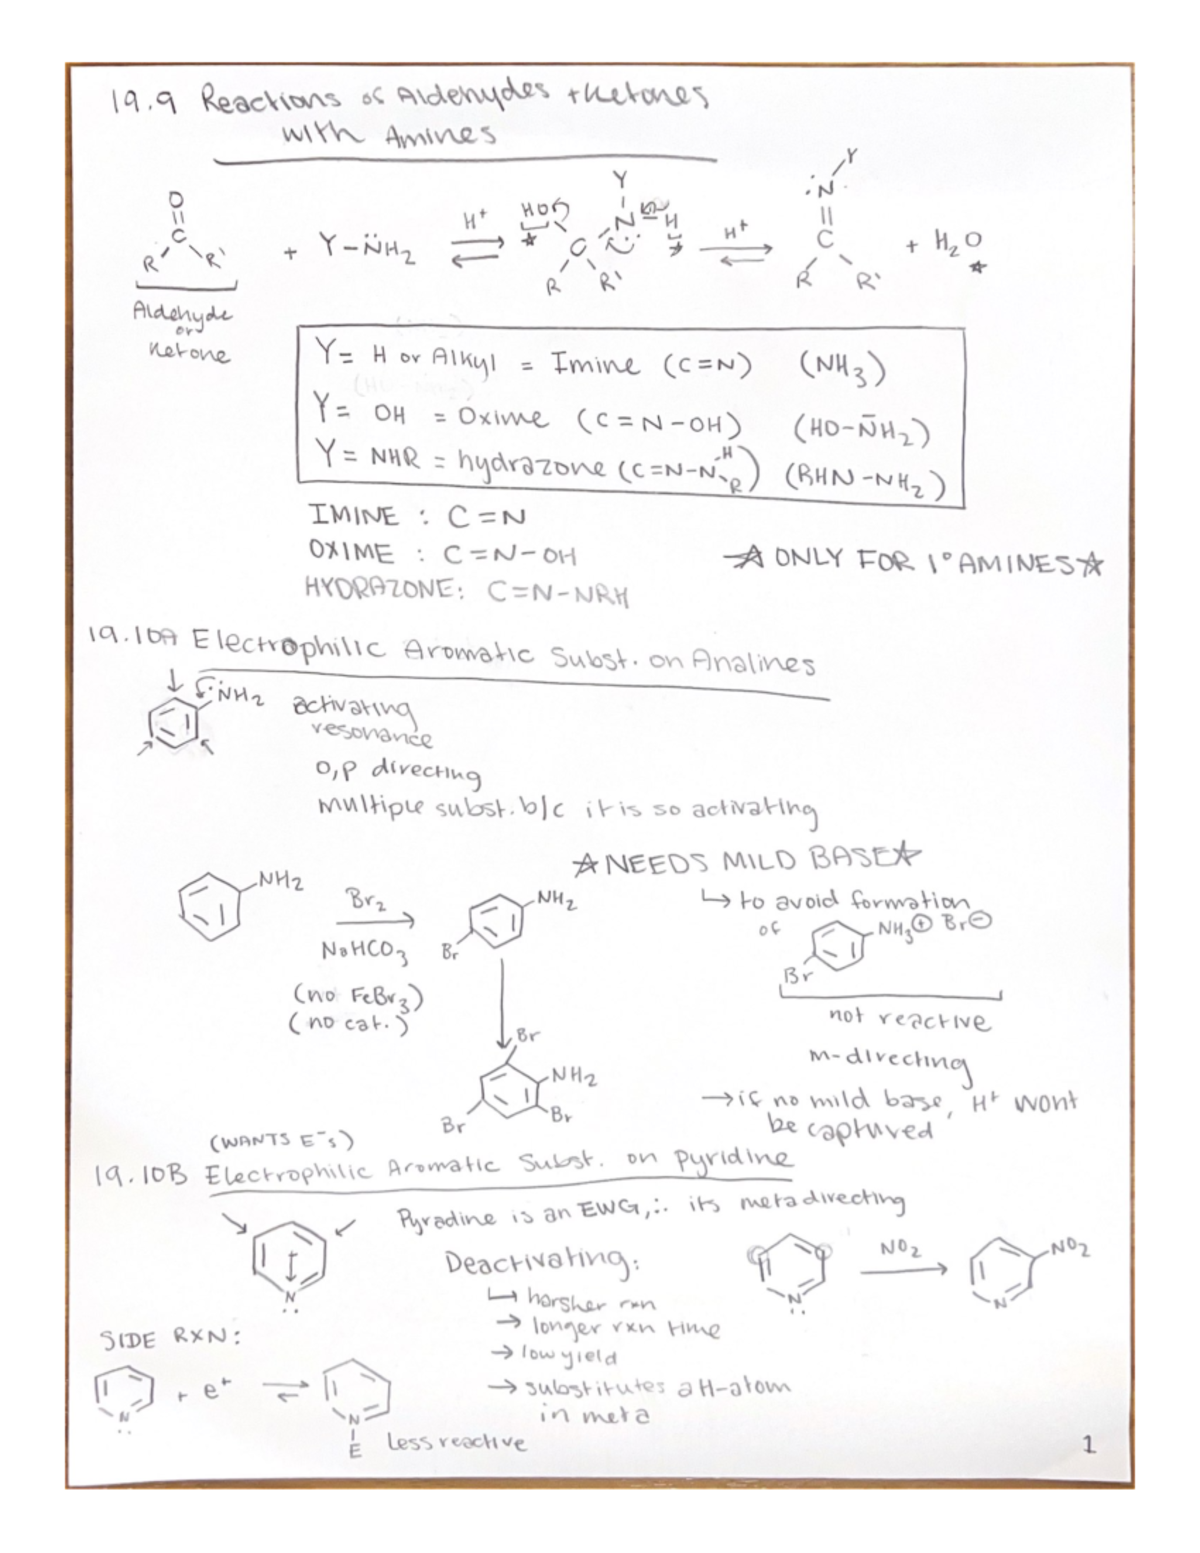 19.9 Reactions of Aldehydes + Ketones
with Amines
O
C
R R'
+ Y-N̈H2
H+
HO
Y
N
H
C
R R'
H+
Y
:N
C
R R'
+ H2O
Aldehyde
or
Ketone
Y= H or Alkyl = Imine (C=N) (NH3)
Y= OH = Oxime (C=N-OH) (HO-N̄H2)
Y= NHR = hydrazone (C=N-N-H R) (RHN-NH2)
IMINE : C=N
OXIME : C=N-OH
☆ ONLY FOR 1° AMINES ☆
HYDRAZONE: C=N-NRH
19.10A Electrophilic Aromatic Subst. on Analines
N̈H2
activating
resonance
o,p directing
multiple subst. b/c it is so activating
☆ NEEDS MILD BASE ☆
NH2
Br2
NaHCO3
(no FeBr3)
(no cat.)
NH2
Br
↳ to avoid formation
of
NH3⊕ Br⊖
Br
not reactive
m-directing
Br
NH2
Br
Br
→ if no mild base, H+ wont
be captured
(WANTS E-s)
19.10B Electrophilic Aromatic Subst. on Pyridine
Pyradine is an EWG, ∴ its meta directing
N
Deactivating:
↳ harsher rxn
→ longer rxn time
→ low yield
→ substitutes a H-atom
in meta
N
NO2
NO2
N
SIDE RXN:
N
+ e+
N
E
Less reactive
1